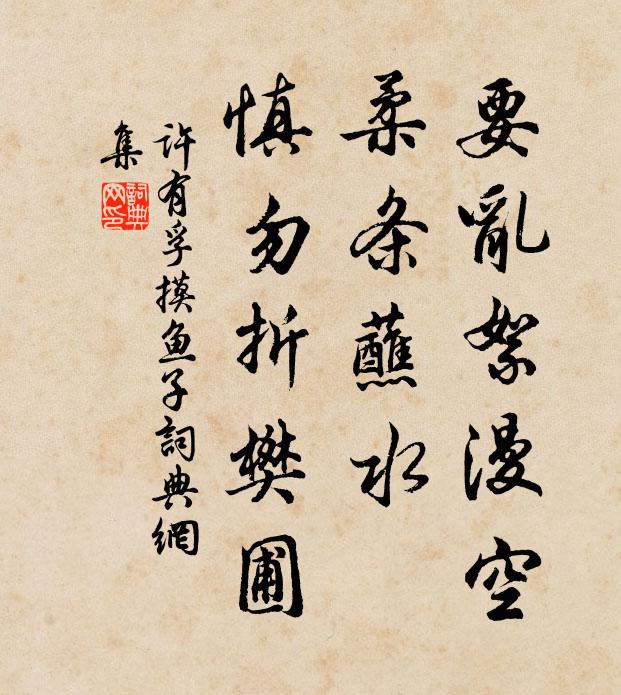 要亂絮漫空
柔条蘸水
慎勿折樊圃
许有孚摸鱼子詞典網
集
詞典
网印